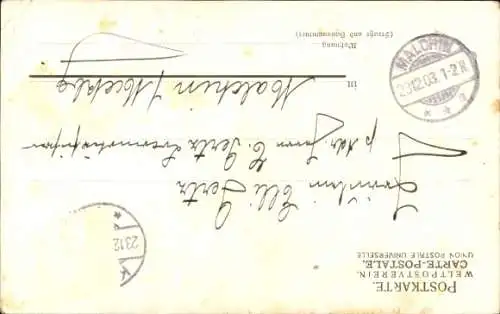 POSTKARTE.
WELTPOSTVEREIN.
CARTE-POSTALE.
UNION POSTALE UNIVERSELLE
Fräulein Elli Gertz
p. Adr. Herrn C. Gertz
in Malchin i/Mecklbg
Wohnung
(Strasse und Hausnummer)
MALCHIN
23.12.03. 1-2 N.
2312